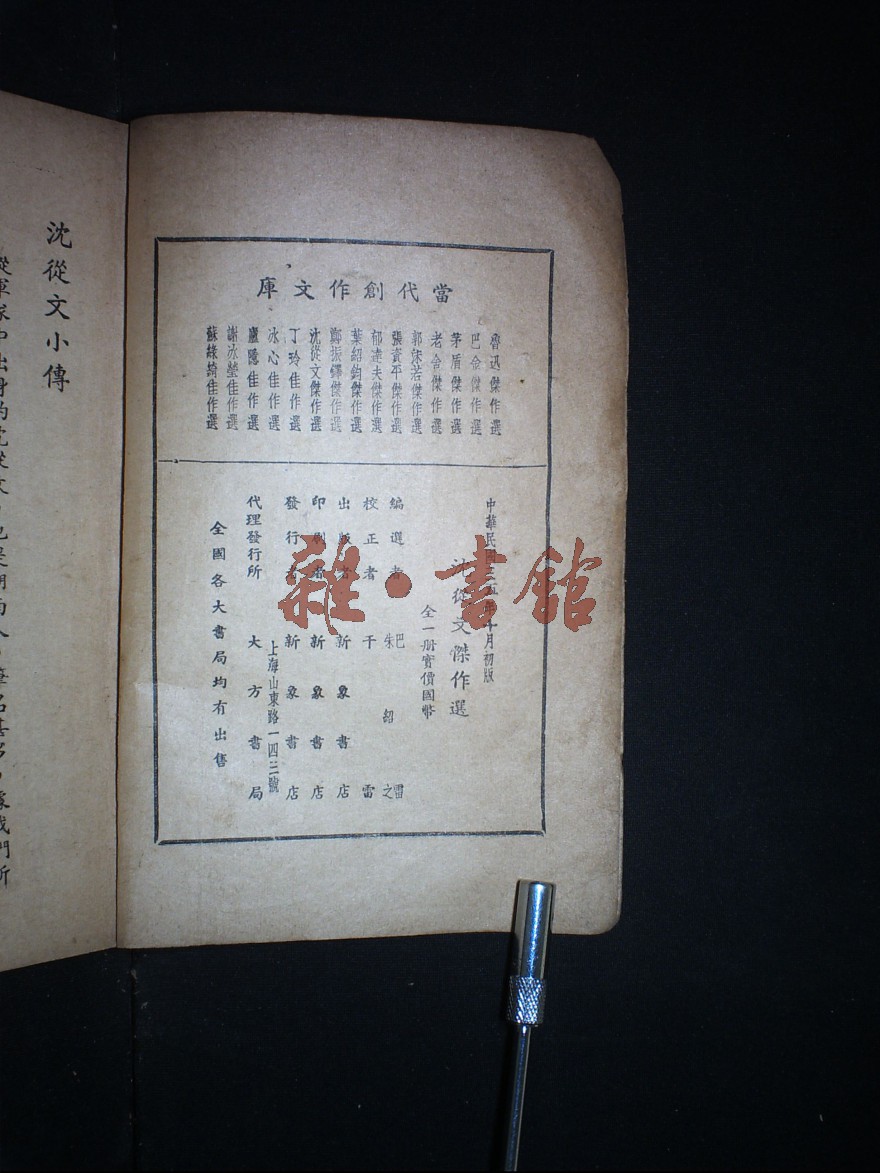 當代創作文庫
魯迅傑作選
巴金傑作選
茅盾傑作選
老舍傑作選
郭沫若傑作選
張資平傑作選
郁達夫傑作選
葉紹鈞傑作選
鄭振鐸傑作選
沈從文傑作選
丁玲佳作選
冰心佳作選
廬隱佳作選
謝冰瑩佳作選
蘇綠綺佳作選
中華民國三五年十月初版
沈從文傑作選
全一册實價國幣
編選者 巴雷
朱紹之
校正者 干雷
出版者 新象書店
印刷者 新象書店
發行者 新象書店
上海山東路一四二號
代理發行所 大方書局
全國各大書局均有出售
雜·書館
沈從文小傳